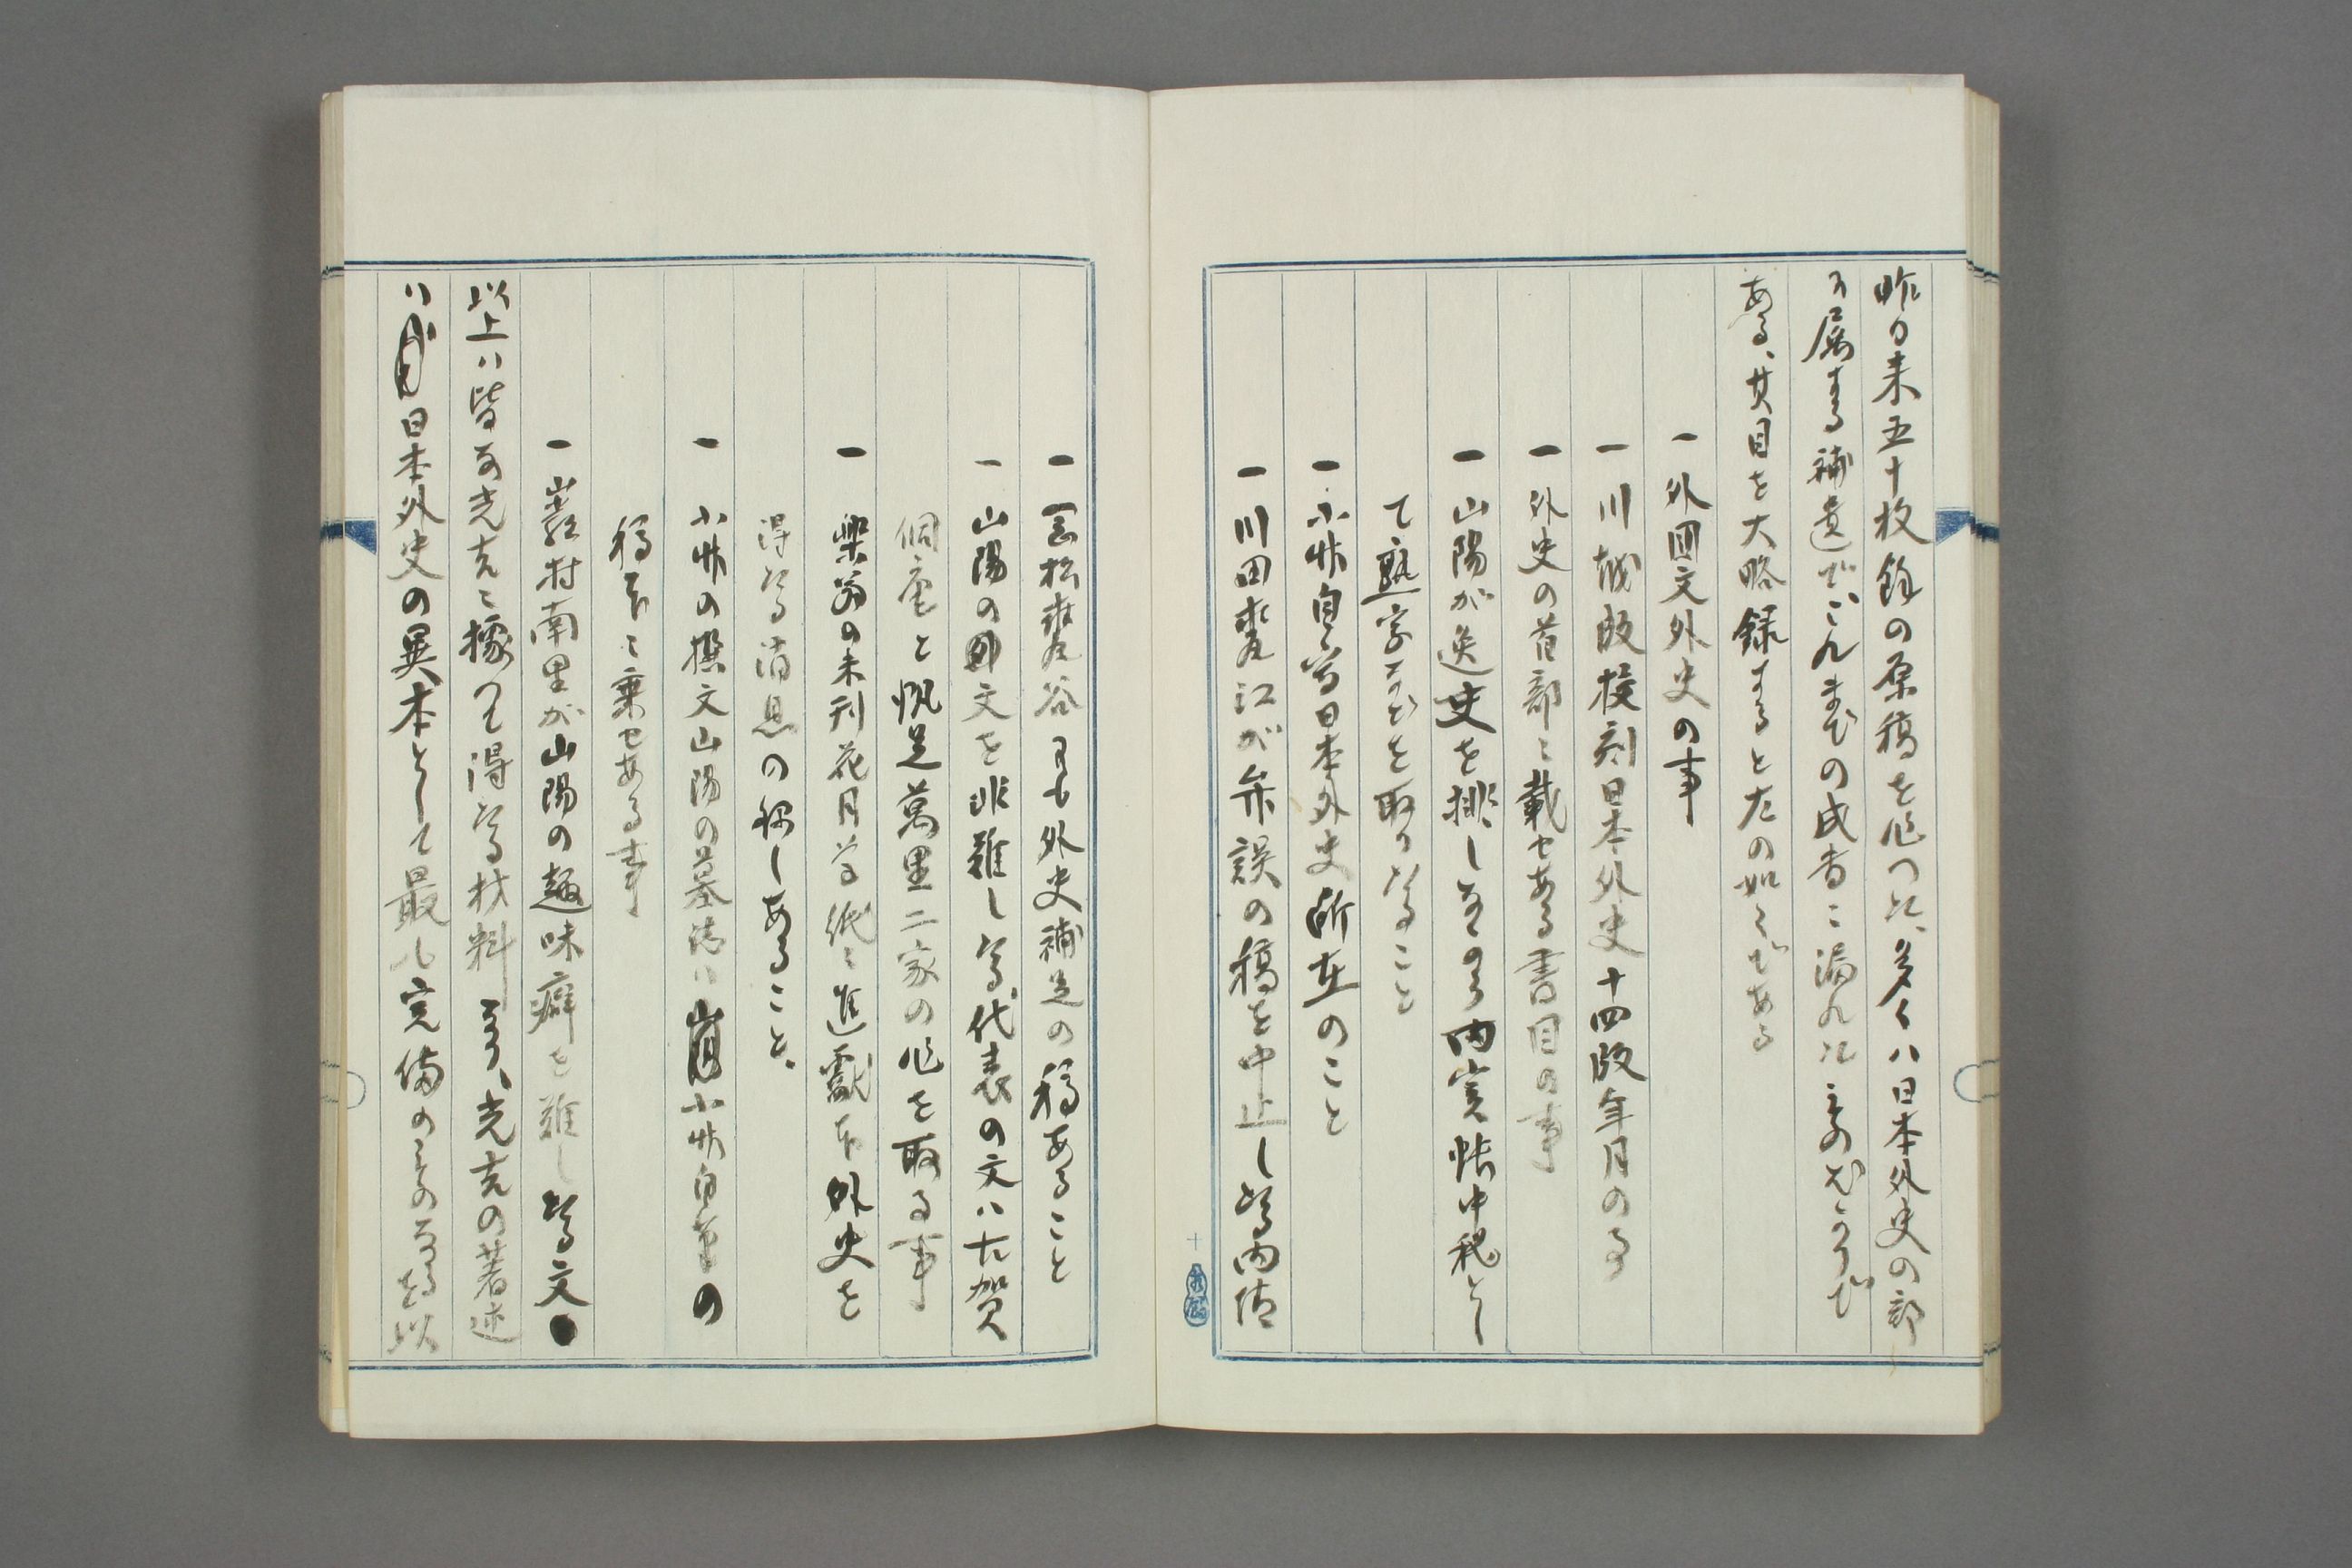 昨日来五十枚餘の原稿を作つた、多くハ日本外史の部
に属する補遺でこれまでの成書に漏れたものばかりで
ある、其目を大略録すると左の如くである
一 外国文外史の事
一 川越版校刻日本外史十四版年月の事
一 外史の首部に載せある書目の事
一 山陽が逸史を排しながら内実帳中秘とし
て熟字などを取りたること
一 小竹自筆日本外史所在のこと
一 川田甕江が弁誤の稿を中止したる内情
一 岡松甕谷にも外史補足の稿あること
一 山陽の文を非難したる代表の文ハ古賀
侗庵と帆足萬里二家の作を取る事
一 楽翁の未刊花月草紙に進献本外史を
得たる消息の録しあること、
一 小竹の撰文山陽の墓誌ハ小竹自筆の
稿本に乗せある事
一 巖村南里が山陽の趣味癖を難したる文
以上ハ皆な光吉に據つて得たる材料なり、光吉の著述
ハ日本外史の異本として最も完備のものなるを以